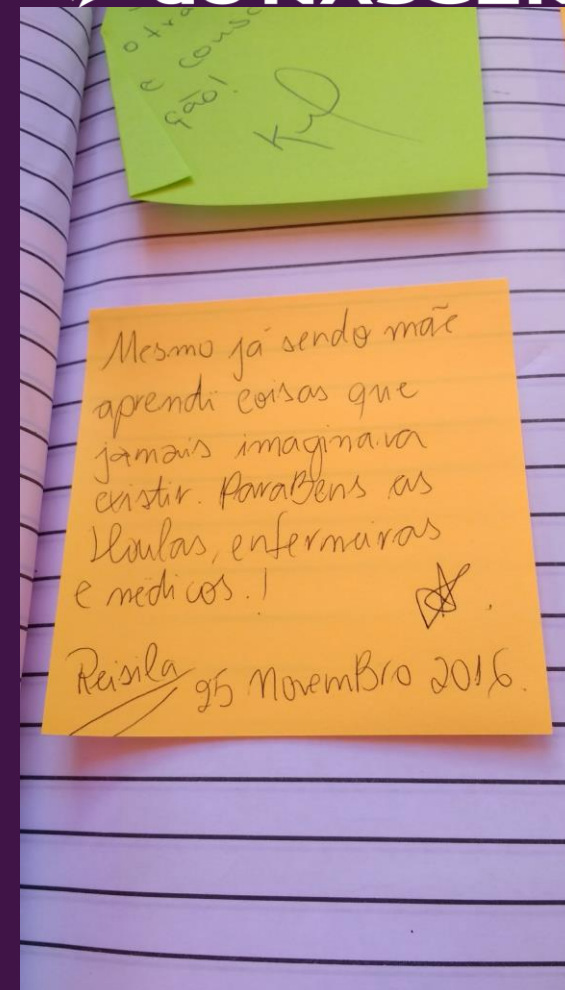 e consc
ção!
Mesmo já sendo mãe
aprendi coisas que
jamais imaginava
existir. ParaBens as
Doulas, enfermeiras
e médicos.!
Reisila 25 NovemBro 2016.